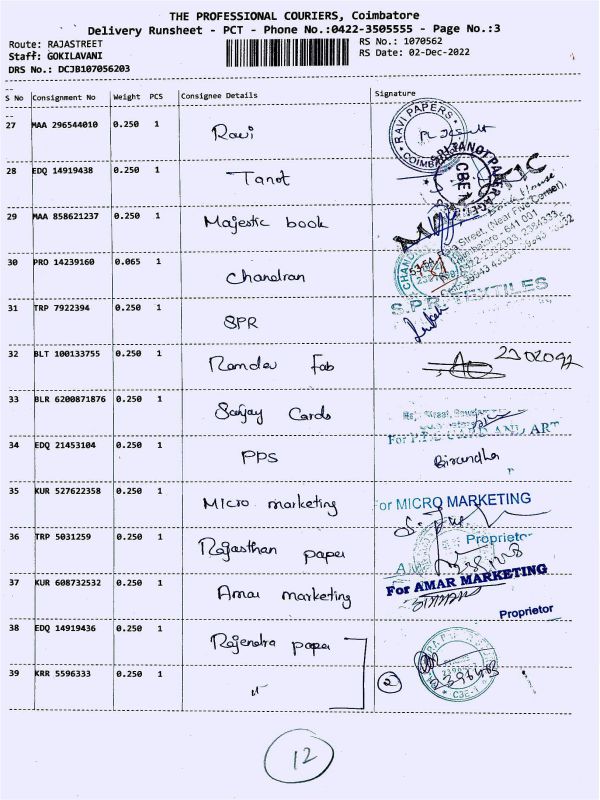 THE PROFESSIONAL COURIERS, Coimbatore
Delivery Runsheet - PCT - Phone No.:0422-3505555 - Page No.:3
Route: RAJASTREET
RS No.: 1070562
Staff: GOKILAVANI
RS Date: 02-Dec-2022
DRS No.: DCJB107056203
S No Consignment No Weight PCS Consignee Details Signature
27 MAA 296544010 0.250 1 Ravi
RAVI PAPERS
COIMBA
28 EDQ 14919438 0.250 1 Tanot
CBE
29 MAA 858621237 0.250 1 Majestic book
30 PRO 14239160 0.065 1 Chandran
31 TRP 7922394 0.250 1 SPR
S.P.R. TEXTILES
32 BLT 100133755 0.250 1 Ramdev Fab
33 BLR 6200871876 0.250 1 Sanjay Cards
34 EDQ 21453104 0.250 1 PPS
Birundha
35 KUR 527622358 0.250 1 Micro marketing
or MICRO MARKETING
Proprietor
36 TRP 5031259 0.250 1 Rajasthan paper
37 KUR 608732532 0.250 1 Amar marketing
For AMAR MARKETING
Proprietor
38 EDQ 14919436 0.250 1 Rajendra paper
39 KRR 5596333 0.250 1 "
2
CBE-1
12